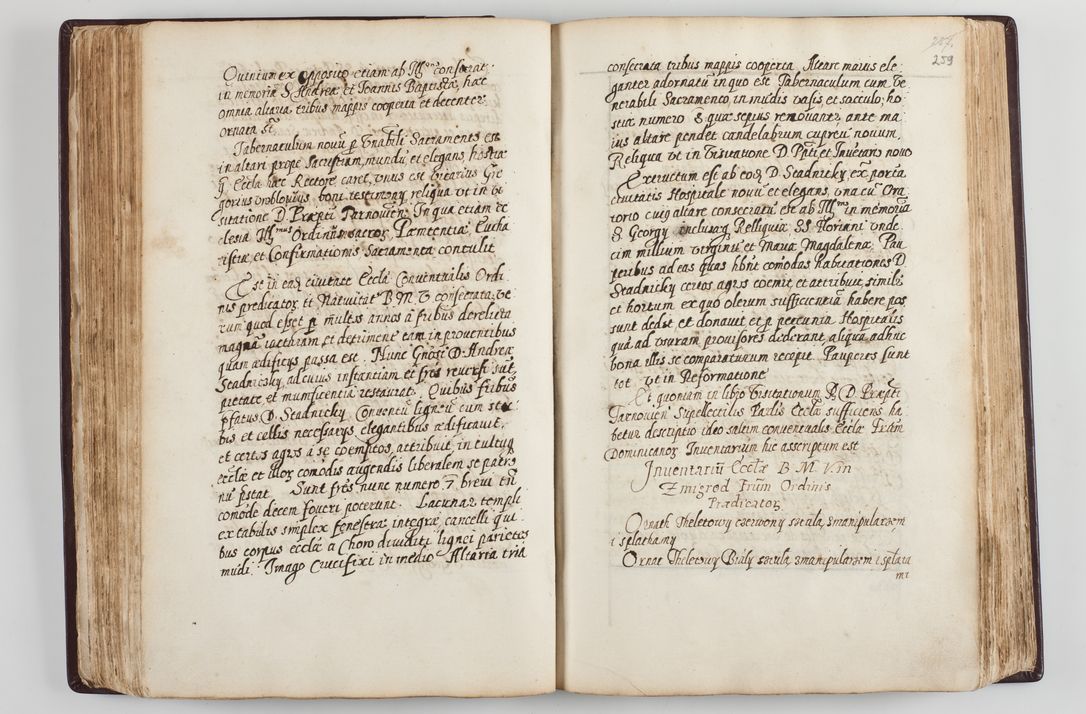 Quintum ex opposito etiam ab Illmo consecrat.
in memoriã S. Andreæ et Ioannis Baptistæ, hæc
omnia altaria tribus mappis cooperta et decenter
ornata st̃.
Tabernaculum novũ p̱ Vnãbili Sacramento est
in altari prope Sacristiam, mundũ et elegans, hostiæ
Eccla hæc Rectore caret, vnus est Vicarius Gre
gorius boni reliqua vt in vi
sitatione D. Præpti Tarnovień. In qua etiam ec
clesia Illmus Ordinñs sacros Pœnitentiæ, Eucha
ristiæ, et Confirmationis Sacramenta contulit
Est in eadẽ civitate Eccla Conventualis Ordi
nis predicator. tt Natiuitat B M V consecrata, ve
rum quod esset p̱ multos annos à fribus derelicta
magnã iacturam et detriment tam in proventibus
quam ædificijs passa est. Nunc Gnõsi D. Andreæ
Stadnicsky, ad cuius instantiam et frẽs reversi sũt,
pietate et munificentia restaurat. Quibus fribus
p̱fatus D. Stadnicky Conventũ ligneũ cum stu
bis et cellis necessarijs elegantibus ædificavit,
et certos agros a se coemptos, attribuit, in cultuq
ecclæ et illor. comodis augendis liberalem se patro
nũ p̱stat. Sunt frẽs nunc numero 7 brevi tñ
comode decem foveri poterunt. Lacunar templi
ex tabulis simplex fenestræ integræ, cancelli qui
bus corpus ecclæ à Choro dividitr lignei parietes
mũdi. Imago Crucifixi in medio Altaria tria
257.
259
consecrata tribus mappis cooperta Altare maius ele
ganter adornatũ in quo est Tabernaculum cum Ve
nerabili Sacramento in mũdis vasis et sacculo, ho
stiæ numero 8 quæ sepius renovantr, ante ma
ius altare pendet candelabrum cupreũ novum,
Reliqua vt in Visitatione D. Ppti et Inventario novo
Exstructum est ab eodẽ D Stadnicky ex porta
civitatis Hospitale novũ et elegans, vna cũ Ora
torio cuiq altare consecratũ est ab Illmo in memoriã
S. Georgy inclusaq Relliquiæ SS Floriani vnde
cim millium virginũ et Mariæ Magdalenæ, Pau
peribus ad eas quas hñt comodas habitationes D
Stadnicky certos agros coemit, et attribuit, similis
et hortum ex quo olerum sufficientiã habere pos
sunt dedit et donavit et p̱ pecunia Hospitalis
quã ad vsuram provisores dederant, aliqua adhuc
bona illis se comparaturum recepit. Pauperes sunt
tot vt in Reformatione
Et quoniam in libro Visitationum R. D. Præpti
Tarnovień Supellectilis Parlis Ecclæ sufficiens ha
betur descriptio ideo saltem conventualis Ecclæ Frãm
Dominicanor Inventarium hic asscriptum est
Inventariũ Ecclæ B. M. V. in
Zmigrod Frũm Ordinis
Prædicator.
Ornath Theletowy czerwony sstula, zmanipularzem
i splathamy
Ornat Theletowy Biały sstula, zmanipularzem i splata
mi